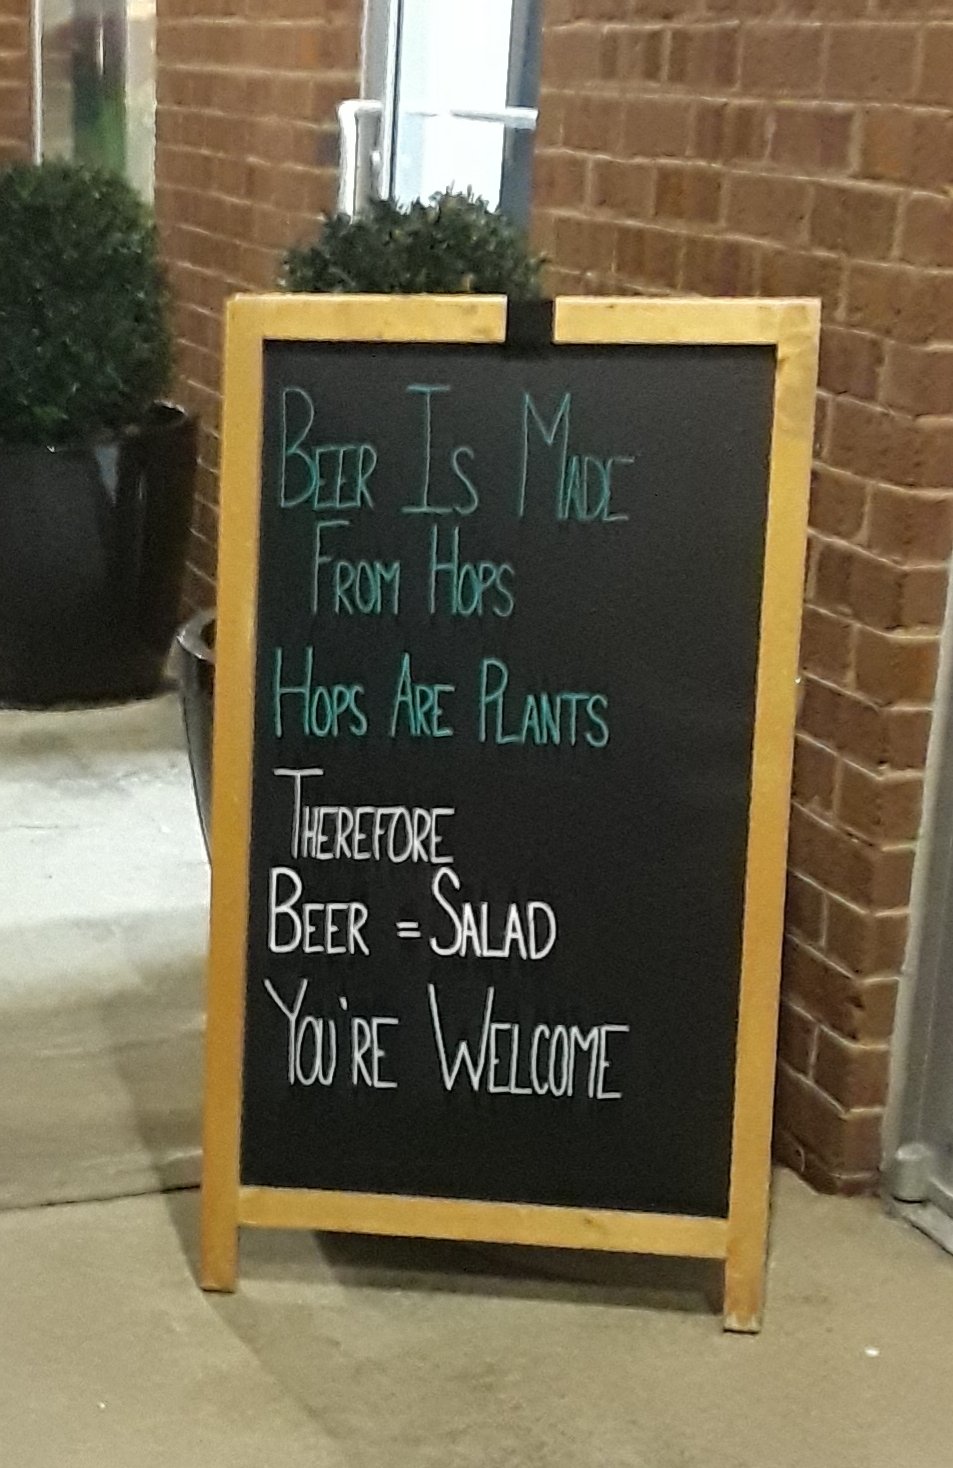 Beer Is Made
From Hops
Hops Are Plants
Therefore
Beer = Salad
You're Welcome